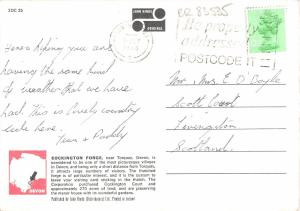 2DC 25
JOHN HINDE
ORIGINAL
BR 83535
Be properly
addressed
POSTCODE IT
Here's hoping you are
having the same kind
of weather that we have
had. This is lovely country
side here.
Jean &
Mr. Mrs. E O'Boyle
Scott Court
Livingston
Scotland
DEVON
COCKINGTON FORGE, near Torquay, Devon, is
considered to be one of the most picturesque villages
in Devon, and being only a short distance from Torquay,
it attracts large numbers of visitors. The thatched
forge is of particular interest, and it is the custom to
leave your visiting card sticking in the thatch. The
Corporation purchased Cockington Court and
approximately 270 acres of land, and are preserving
the manor house with its wonderful gardens.
Published by John Hinde (Distributors) Ltd. Printed in Ireland